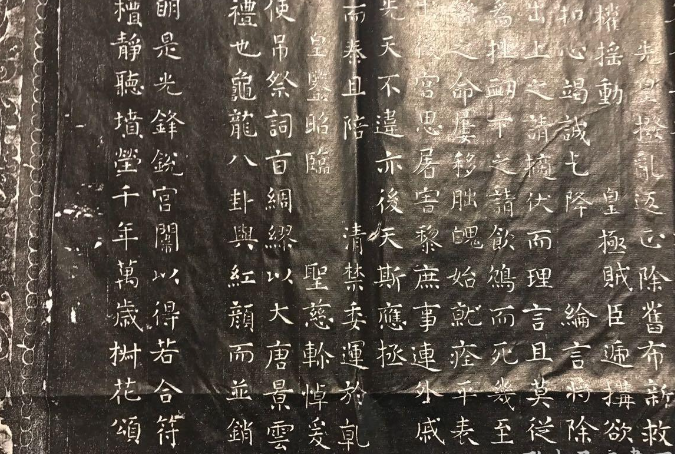 先皇撥亂返正除舊布新救
權搖動 皇極賊臣遞搆欲
扣心竭誠乞降 綸言將除
出上之請擿伏而理言且莫從
為挫衄下之請飲鴆而死幾至
絲之命屢移朏魄始就痊平表
後宮思屠害黎庶事連外戚
先天不違亦後天斯應拯
而泰且陪 清禁委運於乹
皇鑒昭臨 聖慈軫悼爰
使吊祭詞旨綢繆以大唐景雲
禮也龜龍八卦與紅顏而並銷
明是光鋒銳宮闈以得若合符
檟靜聽墳塋千年萬歲椒花頌